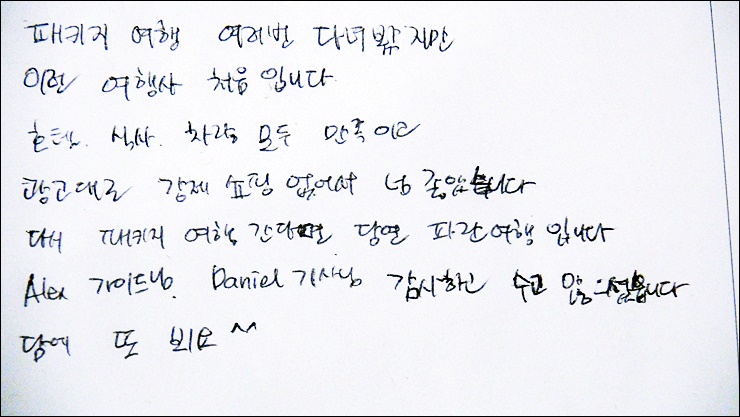 패키지 여행 여러번 다녀봤지만
이런 여행사 처음입니다
호텔. 식사. 차량 모두 만족이고
광고대로 강제 쇼핑 없어서 넘 좋았습니다
다시 패키지 여행 간다면 당연 파란여행 입니다
Alex 가이드님. Daniel 기사님 감사하고 수고 많으셨습니다
담에 또 뵈요 ^^